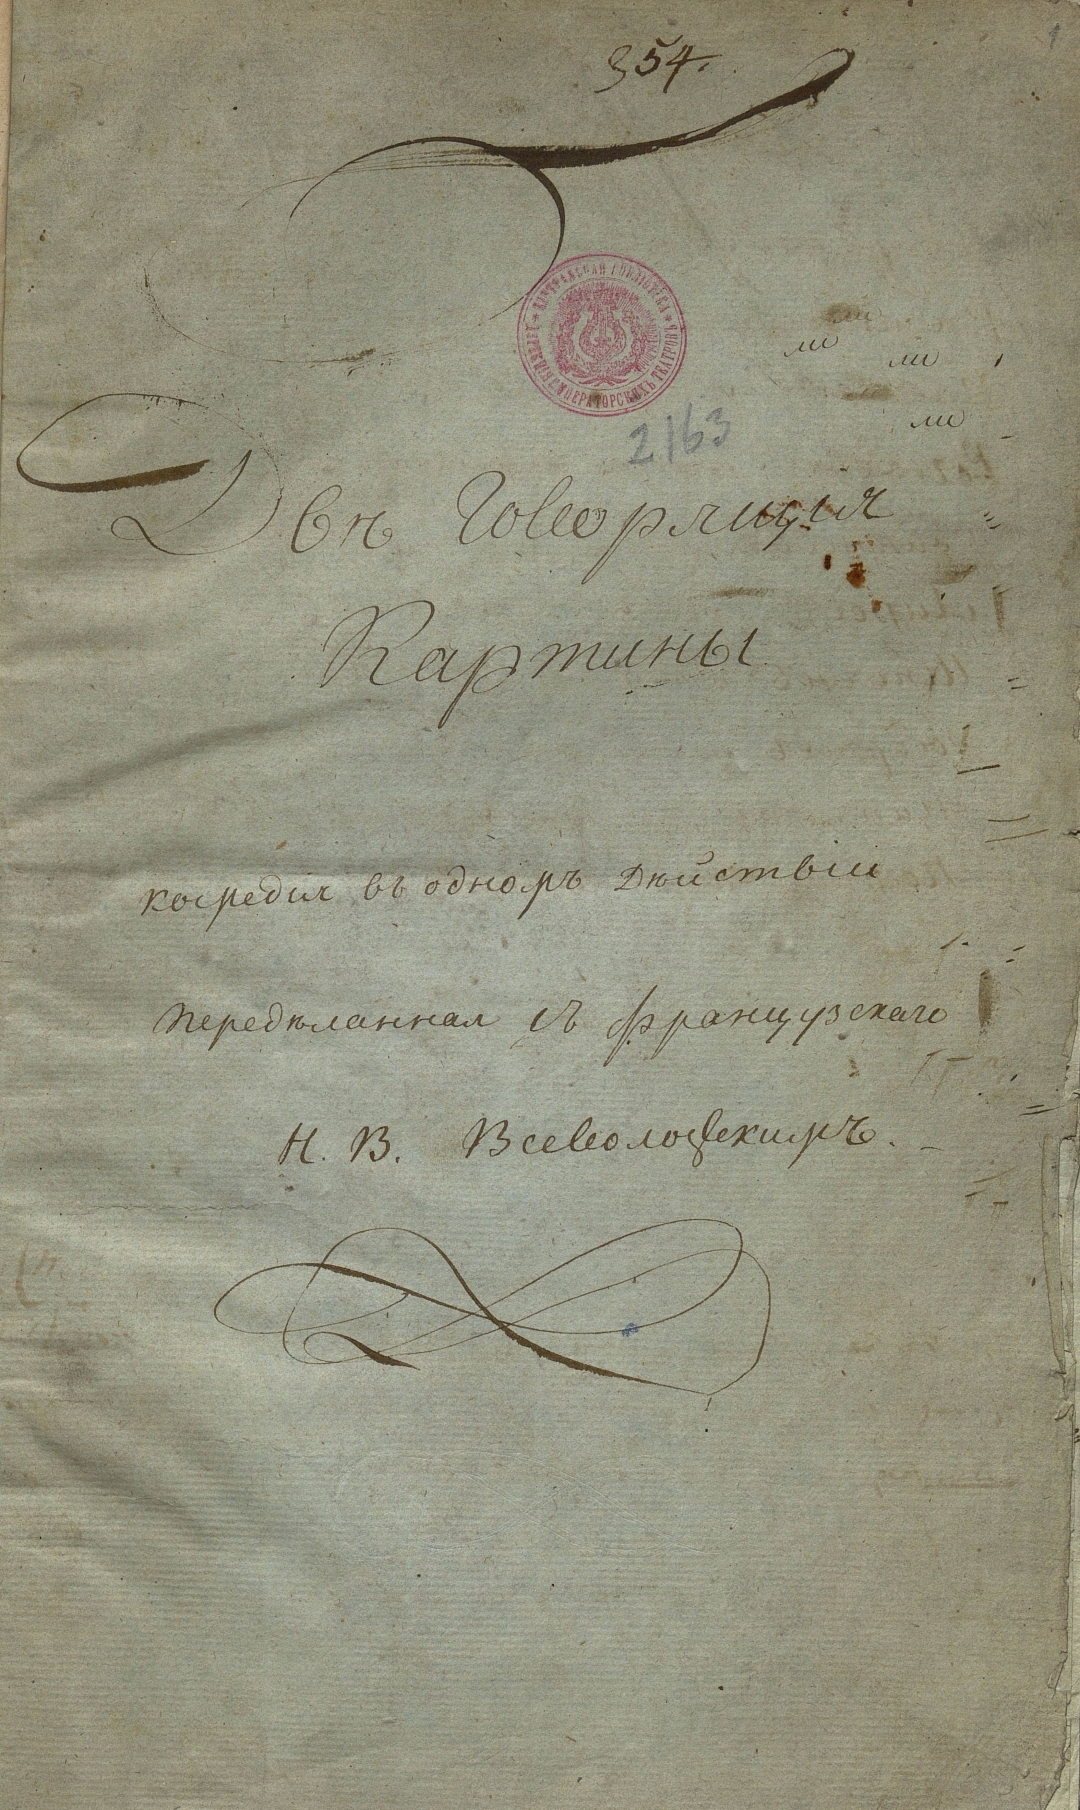 1
354.
ЦЕНТРАЛЬНАЯ БИБЛІОТЕКА ИМПЕРАТОРСКИХЪ ТЕАТРОВЪ
ли
ли ли
ли
2163
Двѣ Говорящія
Картины
комедія въ одномъ дѣйствіи
передѣланная съ французскаго
Н. В. Всеволожскимъ.